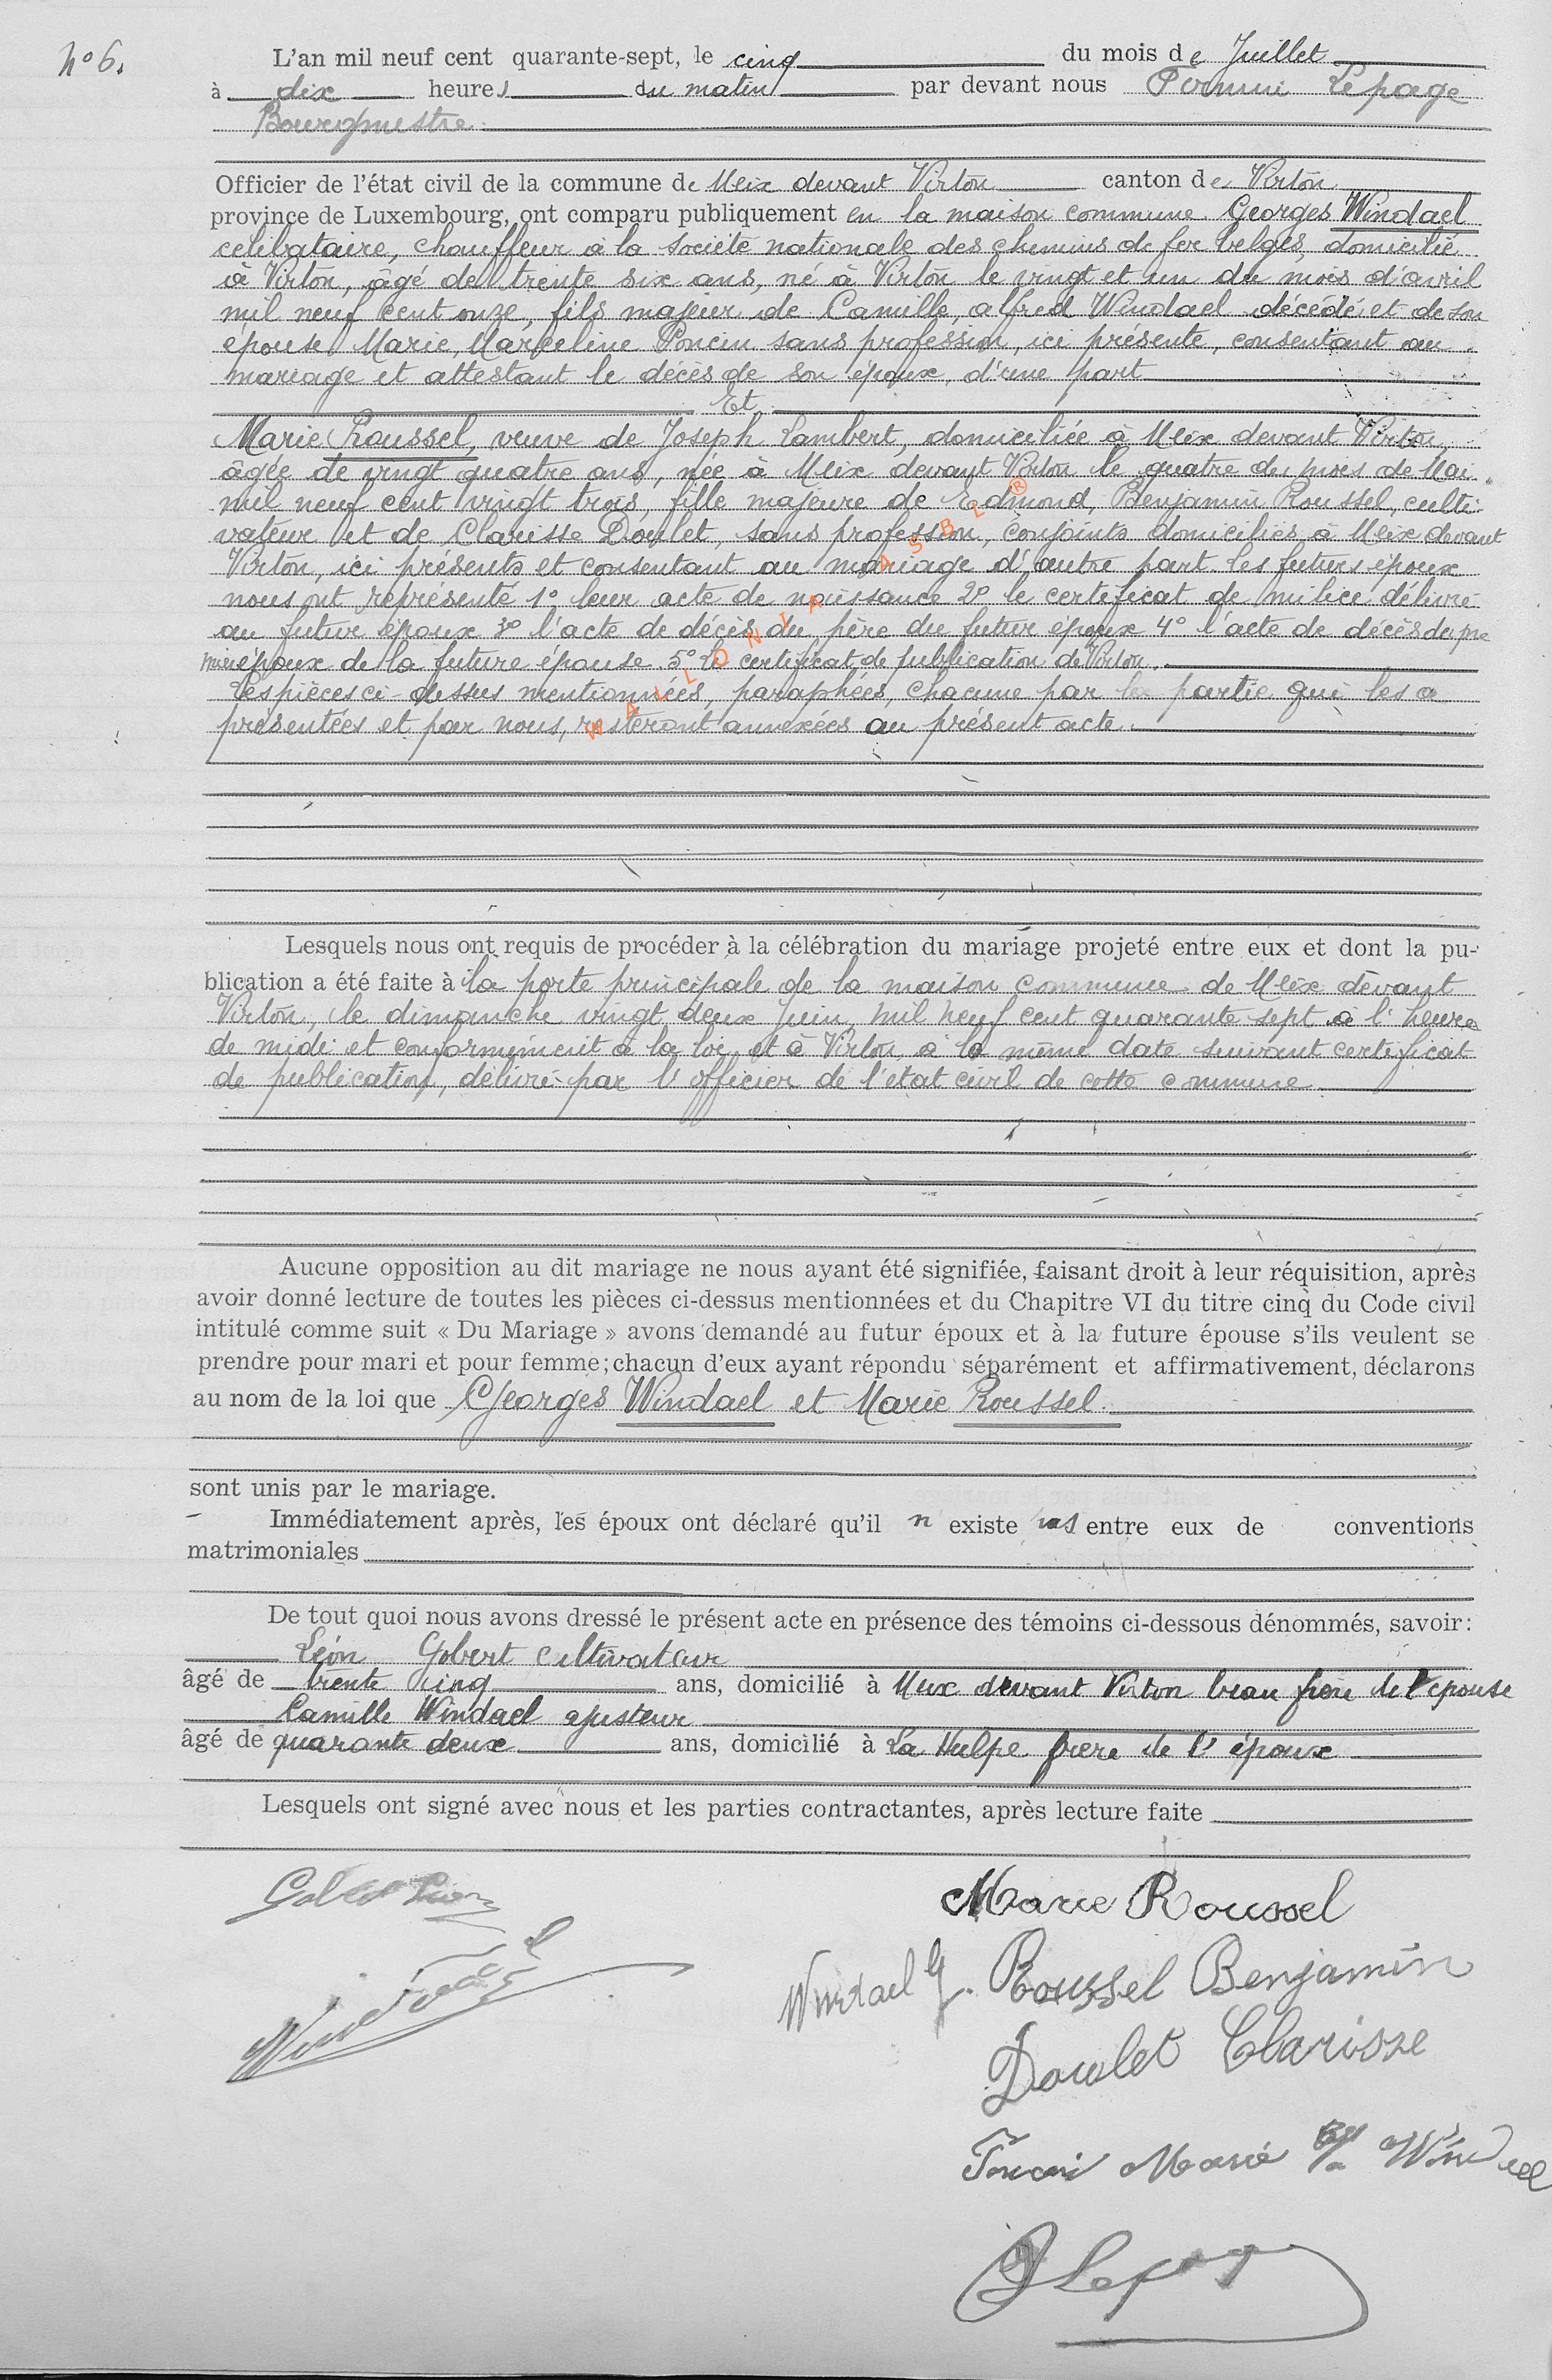 N° 6.
L'an mil neuf cent quarante-sept, le cinq du mois de Juillet
à dix heures du matin par devant nous Firmin Lepage
Bourgmestre
Officier de l'état civil de la commune de Meix devant Virton canton de Virton
province de Luxembourg, ont comparu publiquement en la maison commune Georges Windael
célibataire, chauffeur à la société nationale des chemins de fer belges, domicilié
à Virton, âgé de trente six ans, né à Virton le vingt et un du mois d'avril
mil neuf cent onze, fils majeur de Camille, alfred Windael décédé et de son
épouse Marie, Marceline Poncin sans profession, ici présente, consentant au
mariage et attestant le décès de son époux, d'une part
Et
Marie Roussel, veuve de Joseph Lambert, domiciliée à Meix devant Virton,
âgée de vingt quatre ans, née à Meix devant Virton le quatre du mois de Mai
mil neuf cent vingt trois, fille majeure de Edmond, Benjamin Roussel, culti-
vateur et de Clarisse Doulet, sans profession, conjoints domiciliés à Meix devant
Virton, ici présents et consentant au mariage d'autre part. Les futurs époux
nous ont représenté 1° leur acte de naissance 2° le certificat de milice délivré
au futur époux 3° l'acte de décès du père du futur époux 4° l'acte de décès du pre
mier époux de la future épouse 5° le certificat de publication de Virton.
Les pièces ci-dessus mentionnées, paraphées, chacune par la partie qui les a
présentées et par nous, resteront annexées au présent acte.
WALLONIA ASBL ®
Lesquels nous ont requis de procéder à la célébration du mariage projeté entre eux et dont la pu-
blication a été faite à la porte principale de la maison commune de Meix devant
Virton, le dimanche vingt deux Juin, mil neuf cent quarante sept à l'heure
de midi et conformément à la loi et à Virton, à la même date suivant certificat
de publication, délivré par l'officier de l'état civil de cette commune
Aucune opposition au dit mariage ne nous ayant été signifiée, faisant droit à leur réquisition, après
avoir donné lecture de toutes les pièces ci-dessus mentionnées et du Chapitre VI du titre cinq du Code civil
intitulé comme suit « Du Mariage » avons demandé au futur époux et à la future épouse s'ils veulent se
prendre pour mari et pour femme; chacun d'eux ayant répondu séparément et affirmativement, déclarons
au nom de la loi que Georges Windael et Marie Roussel.
sont unis par le mariage.
Immédiatement après, les époux ont déclaré qu'il n existe pas entre eux de conventions
matrimoniales
De tout quoi nous avons dressé le présent acte en présence des témoins ci-dessous dénommés, savoir:
Léon Gobert cultivateur
âgé de trente cinq ans, domicilié à Meix devant Virton beau frère de l'épouse
Camille Windael ajusteur
âgé de quarante deux ans, domicilié à La Hulpe frère de l'époux
Lesquels ont signé avec nous et les parties contractantes, après lecture faite
Gobert Léon
Marie Roussel
Windael G.
Roussel Benjamin
Windael
Doulet Clarisse
Poncin Marie Windael
Lepage